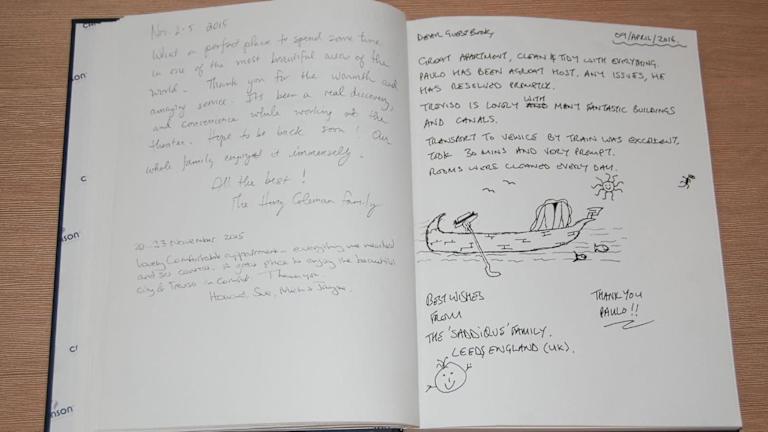 Nov. 2-5 2015
What a perfect place to spend some time
in one of the most beautiful areas of the
world. Thank you for the warmth and
amazing service. It's been a real discovery,
and convenience while working at the
theater. Hope to be back soon! Our
whole family enjoyed it immensely.
All the best!
The Coleman family
20-23 November 2015
Lovely comfortable appartment - everything we needed
and so central. A great place to enjoy the beautiful
city of Treviso in comfort. Thank you.
Howard, Sue,
DEAR GUEST BOOK,
09/APRIL/2016.
GREAT APARTMENT, CLEAN & TIDY WITH EVERYTHING.
PAULO HAS BEEN A GREAT HOST. ANY ISSUES, HE
HAS RESOLVED PROMPTLY.
TREVISO IS LOVELY WITH MANY FANTASTIC BUILDINGS
AND CANALS.
TRANSPORT TO VENICE BY TRAIN WAS EXCELLENT.
TOOK 30 MINS AND VERY PROMPT.
ROOMS WERE CLEANED EVERY DAY.
BEST WISHES
FROM
THE 'SADDIQUE' FAMILY.
LEEDS ENGLAND (UK).
THANK YOU
PAULO!!